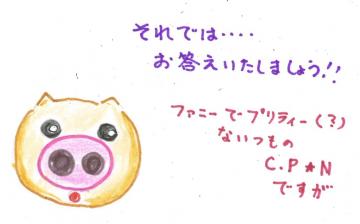 それでは‥‥
お答えいたしましょう!!
ファニーでプリティー(?)
ないつもの
C.P★N
ですが